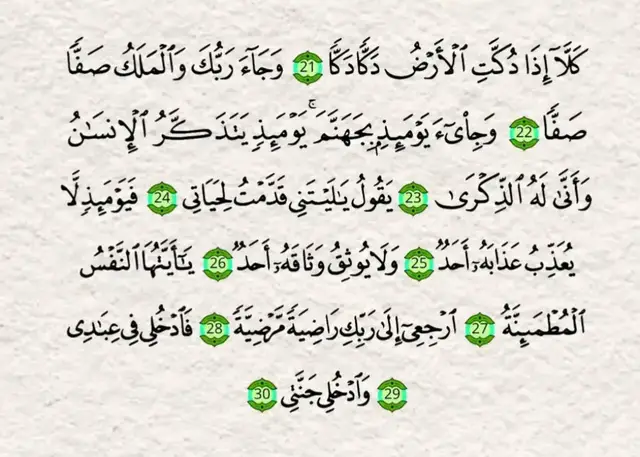 كَلَّآ إِذَا دُكَّتِ ٱلْأَرْضُ دَكًّا دَكًّا 21 وَجَآءَ رَبُّكَ وَٱلْمَلَكُ صَفًّا
صَفًّا 22 وَجِا۟ىٓءَ يَوْمَئِذٍۭ بِجَهَنَّمَ ۚ يَوْمَئِذٍ يَتَذَكَّرُ ٱلْإِنسَٰنُ
وَأَنَّىٰ لَهُ ٱلذِّكْرَىٰ 23 يَقُولُ يَٰلَيْتَنِى قَدَّمْتُ لِحَيَاتِى 24 فَيَوْمَئِذٍ لَّا
يُعَذِّبُ عَذَابَهُۥٓ أَحَدٌ 25 وَلَا يُوثِقُ وَثَاقَهُۥٓ أَحَدٌ 26 يَٰٓأَيَّتُهَا ٱلنَّفْسُ
ٱلْمُطْمَئِنَّةُ 27 ٱرْجِعِىٓ إِلَىٰ رَبِّكِ رَاضِيَةً مَّرْضِيَّةً 28 فَٱدْخُلِى فِى عِبَٰدِى
29 وَٱدْخُلِى جَنَّتِى 30